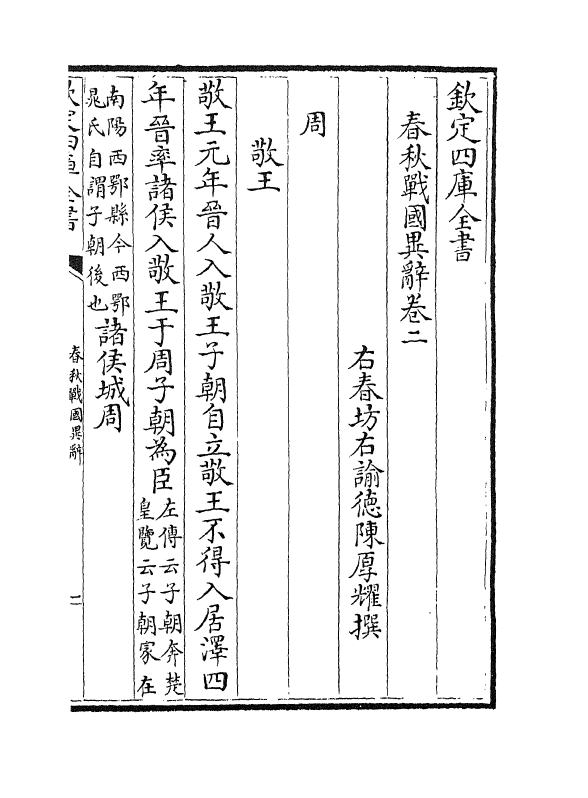 欽定四庫全書
春秋戰國異辭卷二
右春坊右諭徳陳厚耀撰
周
敬王
敬王元年晉人入敬王子朝自立敬王不得入居澤四
年晉率諸侯入敬王于周子朝為臣
左傳云子朝奔楚
皇覽云子朝冢在
南陽西鄂縣今西鄂
晁氏自謂子朝後也
諸侯城周
欽定四庫全書
春秋戰國異辭